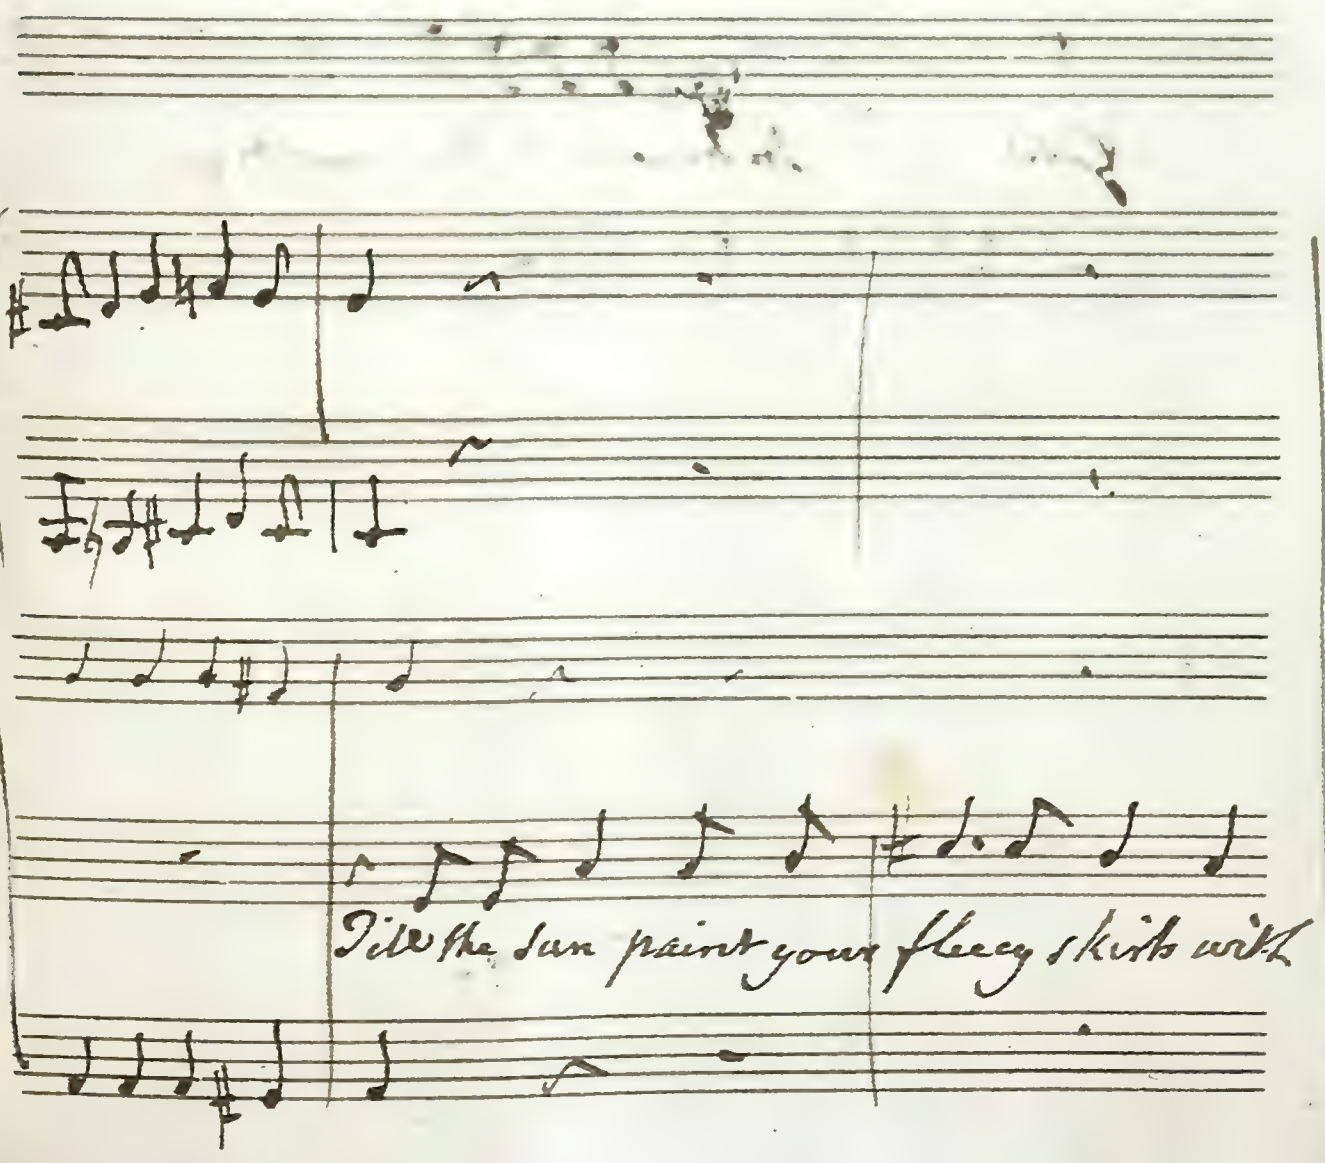 Till the sun paint your fleecy skirts with